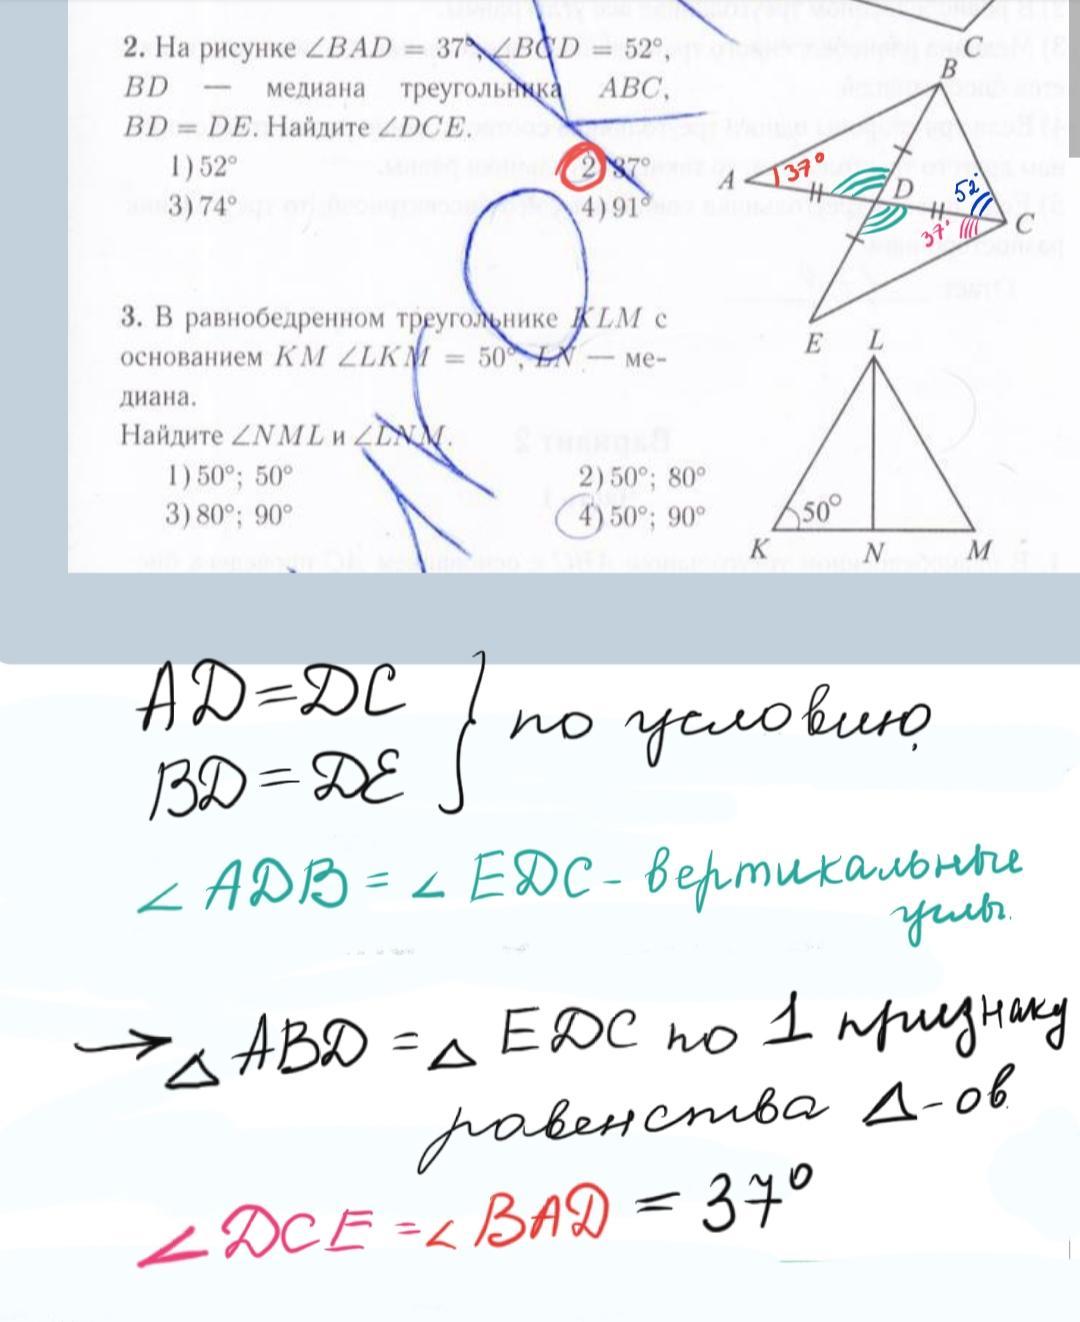 C
2. На рисунке ∠BAD = 37°, ∠BCD = 52°,
BD — медиана треугольника ABC,
BD = DE. Найдите ∠DCE.
1) 52°
2) 37°
3) 74°
4) 91°
B
A
37°
D
52°
C
37°
E
3. В равнобедренном треугольнике KLM с
основанием KM ∠LKM = 50°, LN — ме-
диана.
Найдите ∠NML и ∠LNM.
1) 50°; 50°
2) 50°; 80°
3) 80°; 90°
4) 50°; 90°
L
50°
K N M
AD = DC
BD = DE
} по условию,
∠ ADB = ∠ EDC - вертикальные
углы.
→ Δ ABD = Δ EDC по 1 признаку
равенства Δ-ов
∠ DCE = ∠ BAD = 37°